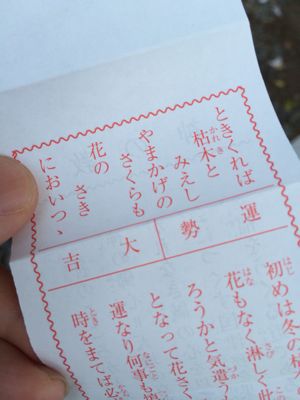 ときくれば
枯木と
みえし
やまかげの
さくらも
花の さき
においつゝ
運勢
大吉
初めは冬の
花もなく淋しく
ろうかと気遣
となって花さ
運なり何事も
時をまてば必